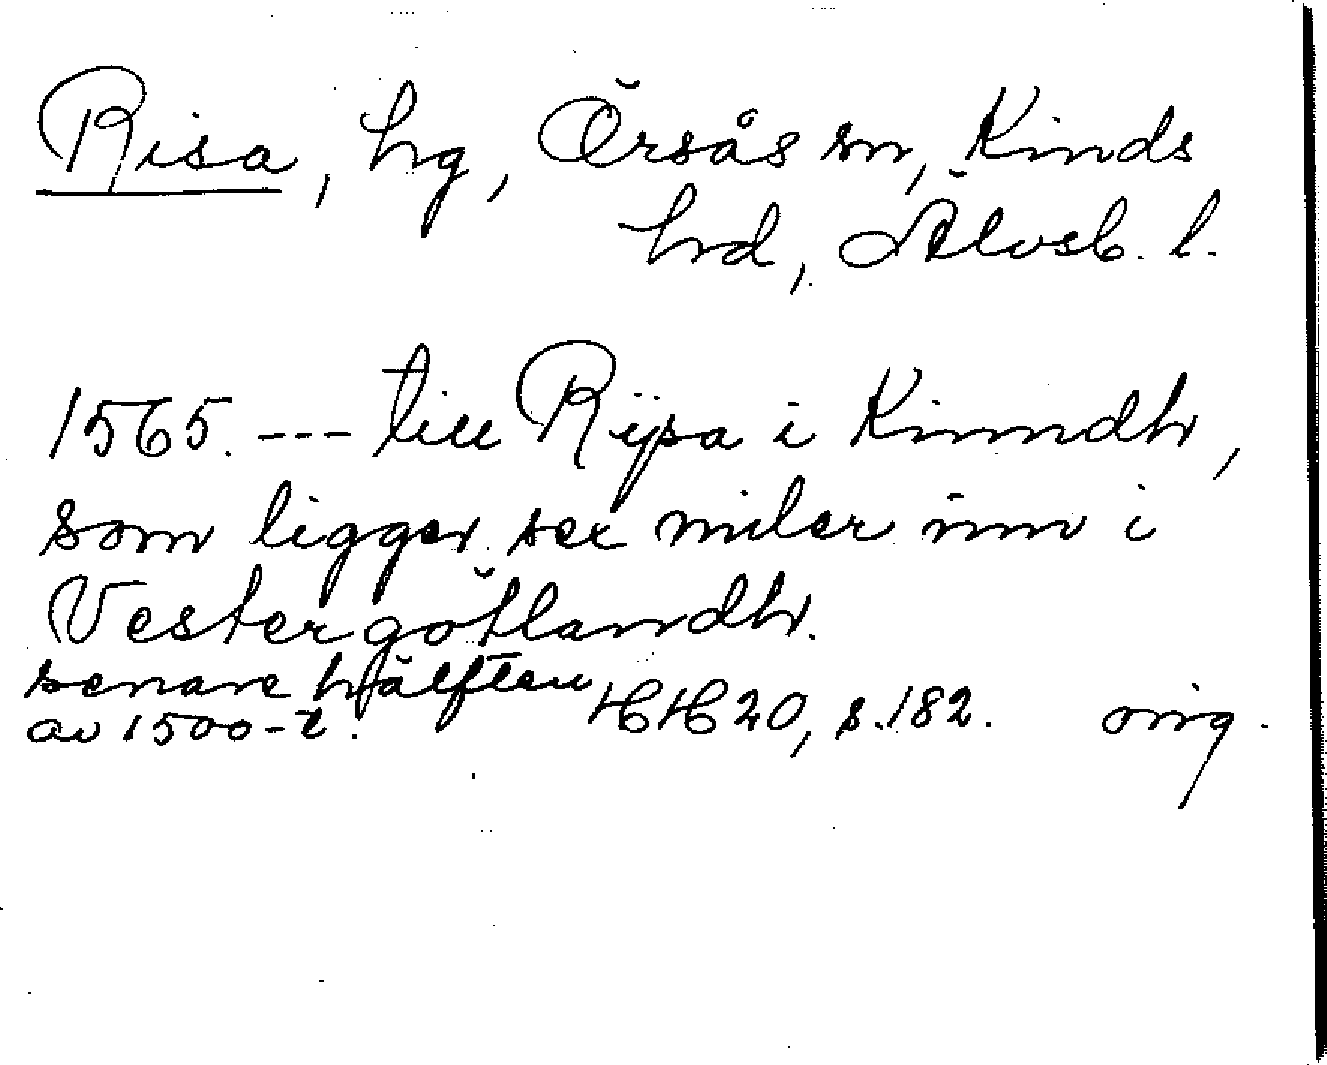 Risa, hg, Örsås sn, Kinds
hrd, Älvsb. l.
1565. --- till Rijsa i Kinndh,
som ligger sex miler inn i
Vestergötlandh.
senare hälften
av 1500-t. HH 20, s. 182. orig.